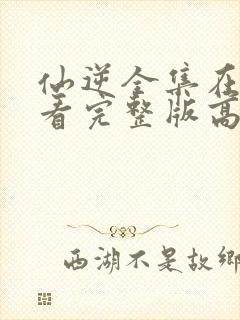 仙逆全集在
看完整版高
西湖不是故鄉